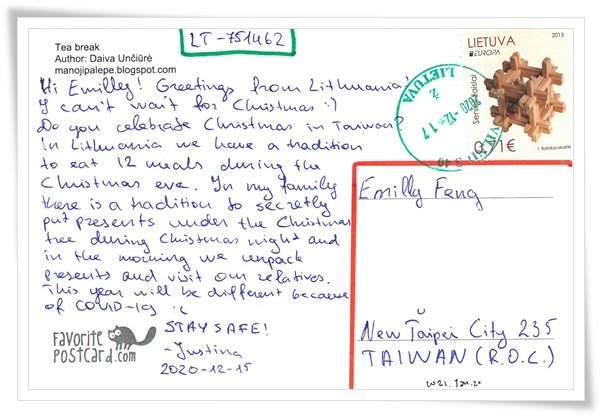 LT-751462
Tea break
Author: Daiva Unčiūrė
manojipalepe.blogspot.com
Hi Emilly! Greetings from Lithuania!
I can't wait for Christmas :)
Do you celebrate Christmas in Taiwan?
In Lithuania we have a tradition
to eat 12 meals during the
Christmas eve. In my family
there is a tradition to secretly
put presents under the Christmas
tree during Christmas night and
in the morning we unpack
presents and visit our relatives.
This year will be different because
of COVID-19 :c
STAY SAFE!
-Justina
2020-12-15
FAVORITE
POSTCARD.com
LIETUVA
2015
EUROPA
Senoviniai žaislai
1€
LIETUVA
2020-12-17
Emilly Feng
New Taipei City 235
TAIWAN (R.O.C.)
2021. Jan. 20